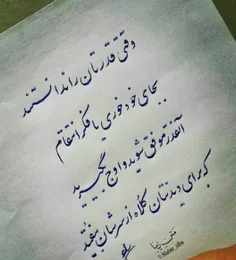 وقتی قدرتان را ندانستند
بجای خودخوری یا فکر انتقام
آنقدر موفق شوید و اوج بگیرید
که برای دیدنتان کلاه از سرشان بیفتد
متن زیبا
@Matne_ziba